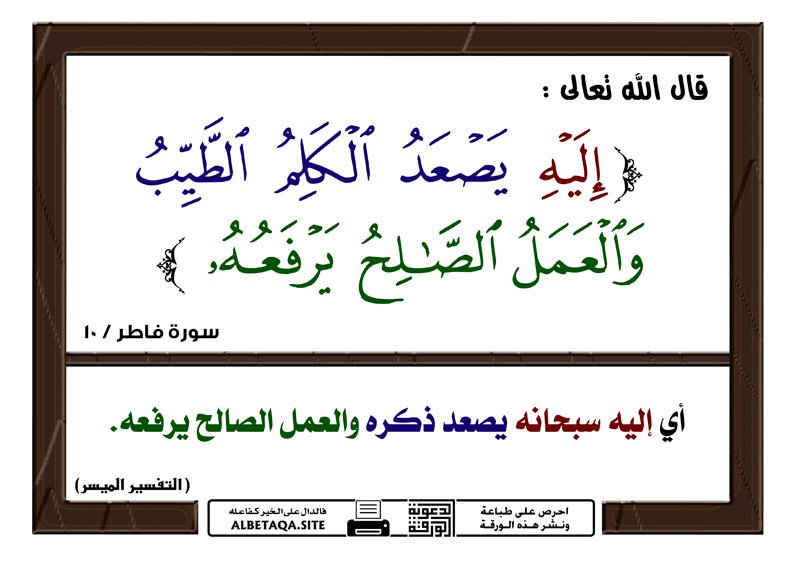 قال الله تعالى :
﴿ إِلَيْهِ يَصْعَدُ ٱلْكَلِمُ ٱلطَّيِّبُ
وَٱلْعَمَلُ ٱلصَّـٰلِحُ يَرْفَعُهُۥ ﴾
سورة فاطر / ١٠
أي إليه سبحانه يصعد ذكره والعمل الصالح يرفعه.
( التفسير الميسر )
احرص على طباعة
ونشر هذه الورقة
الورقة الدعوية
فالدال على الخير كفاعله
ALBETAQA.SITE